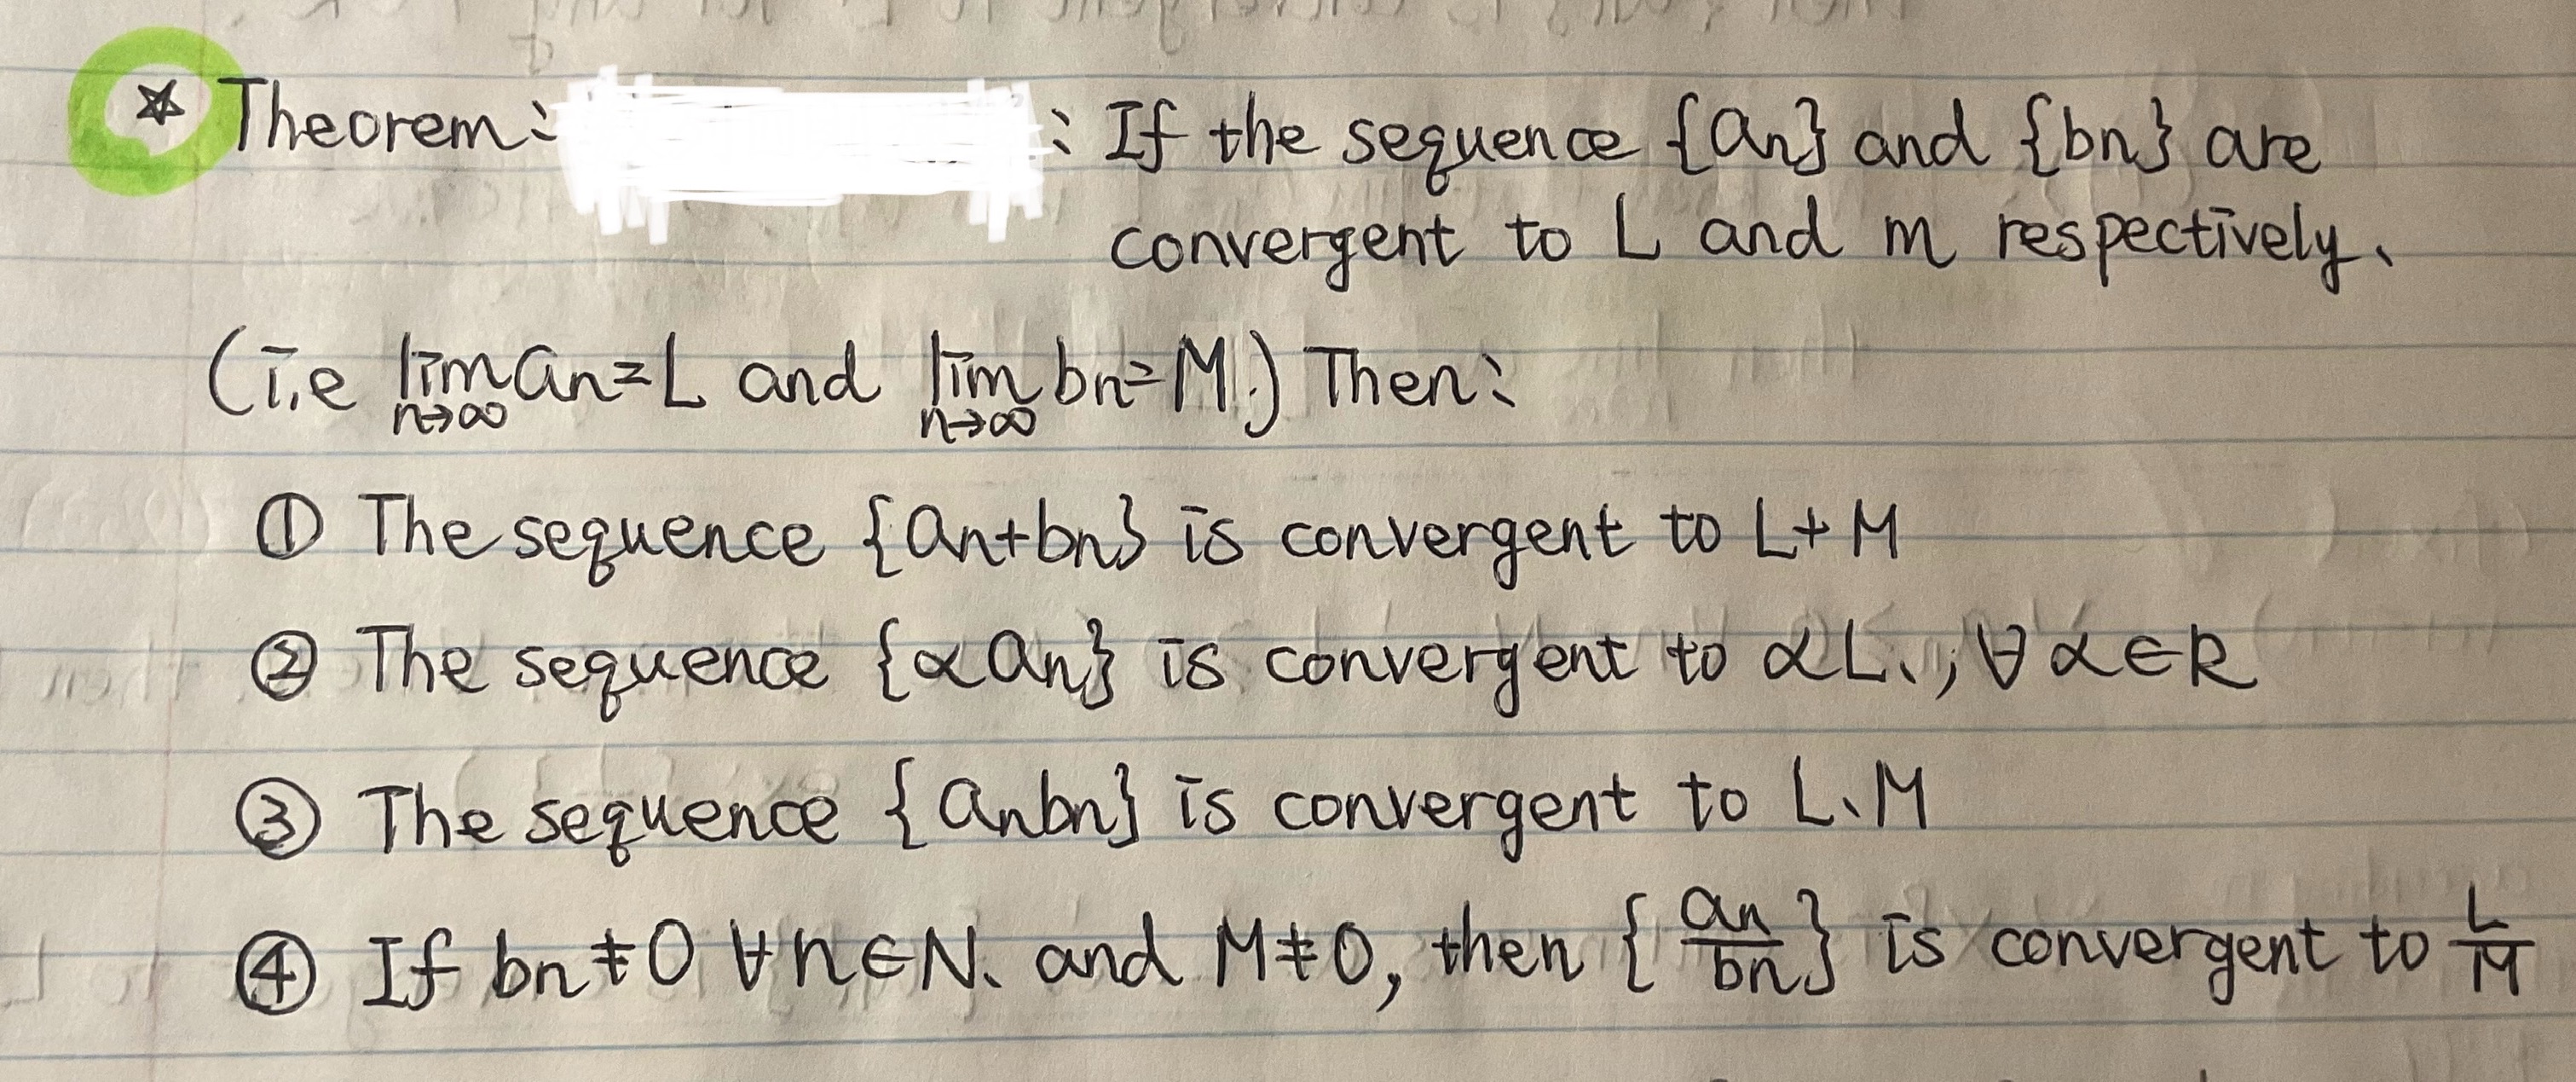 ☆ Theorem: : If the sequence {an} and {bn} are
convergent to L and m respectively.
(i.e lim n→∞ an=L and lim n→∞ bn=M.) Then:
① The sequence {an+bn} is convergent to L+M
② The sequence {αan} is convergent to αL., ∀α∈R
③ The sequence {anbn} is convergent to L.M
④ If bn≠0 ∀n∈N. and M≠0, then {an/bn} is convergent to L/M